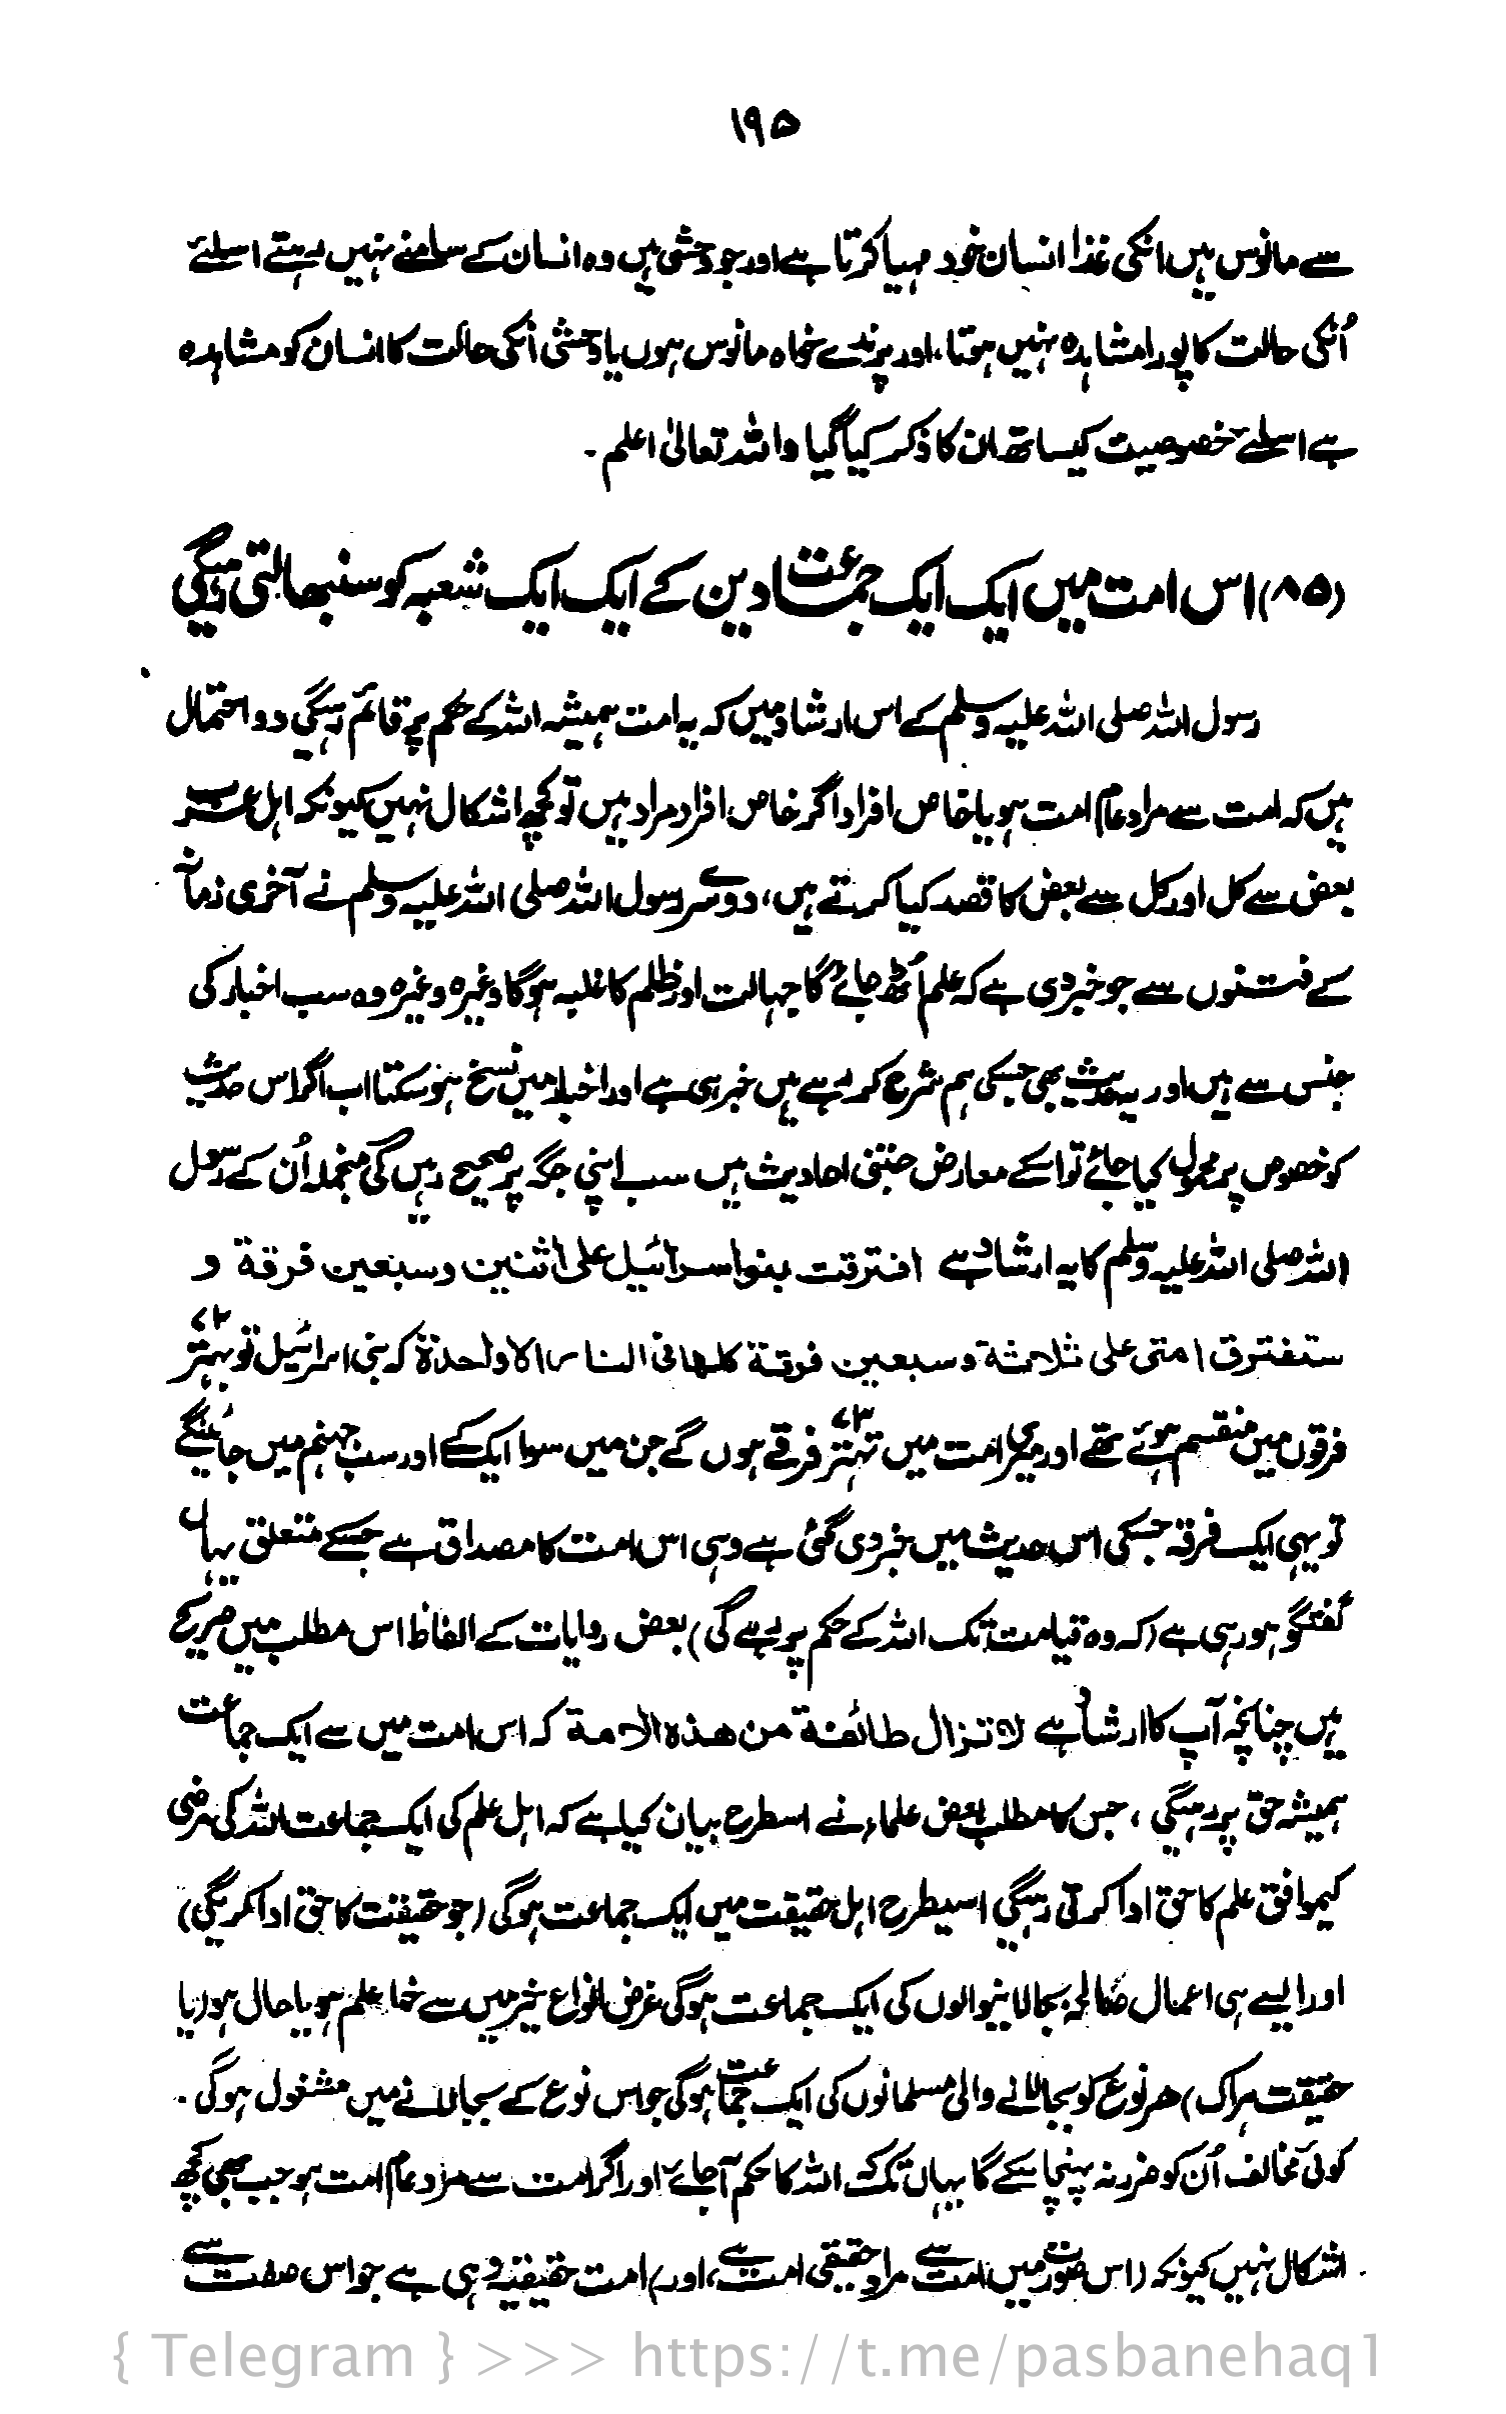 ۱۹۵
سے مانوس ہیں انکی غذا انسان خود مہیا کرتا ہے اور جو وحشی ہیں وہ انسان کے سامنے نہیں رہتے اسلئے
اُنکی حالت کا پورا مشاہدہ نہیں ہوتا، اور پرندے خواہ مانوس ہوں یا وحشی اُنکی حالت کا انسان کو مشاہدہ
ہے اسلئے خصوصیت کیساتھ ان کا ذکر کیا گیا واللہ تعالیٰ اعلم ۔
(۸۵) اس امت میں ایک ایک جماعت دین کے ایک ایک شعبہ کو سنبھالتی رہیگی
رسول اللہ صلی اللہ علیہ وسلم کے اس ارشاد میں کہ یہ امت ہمیشہ اللہ کے حکم پر قائم رہیگی دو احتمال
ہیں کہ امت سے مراد عام امت ہو یا خاص افراد اگر خاص افراد مراد ہیں تو کچھ اشکال نہیں کیونکہ اہل عرب
بعض سے کل اور کل سے بعض کا قصد کیا کرتے ہیں، دوسرے رسول اللہ صلی اللہ علیہ وسلم نے آخری زمانہ
کے فتنوں سے جو خبر دی ہے کہ علم اُٹھ جائے گا جہالت اور ظلم کا غلبہ ہوگا وغیرہ وغیرہ وہ سب اخبار کی
جنس سے ہیں اور یہ حدیث بھی جسکی ہم شرح کر رہے ہیں خبر ہی ہے اور اخبار میں نسخ ہنو سکتا اب اگر اس حدیث
کو خصوص پر محمول کیا جائے تو اسکے معارض جتنی احادیث ہیں سب اپنی جگہ پر صحیح رہیں گی منجملہ اُن کے رسول
اللہ صلی اللہ علیہ وسلم کا یہ ارشاد ہے افترقت بنو اسرائیل علی اثنین وسبعین فرقة و
ستفترق امتی علی ثلاثة وسبعین فرقة کلہا فی النار الا واحدة کہ بنی اسرائیل تو بہتر ۷۲
فرقوں میں منقسم ہوئے تھے اور میری امت میں تہتر ۷۳ فرقے ہوں گے جن میں سوا ایک کے اور سب جہنم میں جائینگے
تو یہی ایک فرقہ جسکی اس حدیث میں خبر دی گئی ہے وہی اس امت کا مصداق ہے جسکے متعلق یہاں
گفتگو ہو رہی ہے (کہ وہ قیامت تک اللہ کے حکم پر رہے گی) بعض روایات کے الفاظ اس مطلب میں صریح
ہیں چنانچہ آپ کا ارشاد ہے لا تزال طائفة من ھذہ الامة کہ اس امت میں سے ایک جماعت
ہمیشہ حق پر رہیگی ، جس کا مطلب بعض علماء نے اسطرح بیان کیا ہے کہ اہل علم کی ایک جماعت اللہ کی مرضی
کیموافق علم کا حق ادا کرتی رہیگی اسیطرح اہل حقیقت میں ایک جماعت ہوگی (جو حقیقت کا حق ادا کریگی)
اور ایسے ہی اعمال صالحہ بجا لانیوالوں کی ایک جماعت ہوگی غرض انواع خیر میں سے خواہ علم ہو یا حال ہو (یا
حقیقت ہر اک) ہر نوع کو بجا لانے والی مسلمانوں کی ایک جماعت ہوگی جو اس نوع کے بجا لانے میں مشغول ہوگی ۔
کوئی مخالف اُن کو ضرر نہ پہنچا سکے گا یہاں تک کہ اللہ کا حکم آجائے اور اگر امت سے مراد عام امت ہو جب بھی کچھ
اشکال نہیں کیونکہ (اس صورت میں امت سے مراد حقیقی امت ہے، اور) امت حقیقۃً وہی ہے جو اس صفت سے
{ Telegram } >>> https://t.me/pasbanehaq1